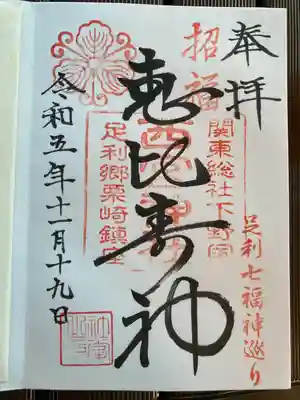 奉拝
足利七福神巡り
招福
関東総社下野国
恵比寿神
足利郷栗崎鎮座
令和五年十一月十九日